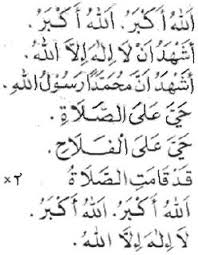 اَللهُ أَكْبَرُ. اَللهُ أَكْبَرُ.
أَشْهَدُ اَنْ لَا إِلٰهَ إِلَّا اللهُ.
أَشْهَدُ اَنَّ مُحَمَّدًا رَسُوْلُ اللهِ.
حَيَّ عَلَى الصَّلَاةِ.
حَيَّ عَلَى الْفَلَاحِ.
قَدْ قَامَتِ الصَّلَاةُ ×٢
اَللهُ أَكْبَرُ. اَللهُ أَكْبَرُ.
لَا إِلٰهَ إِلَّا اللهُ.